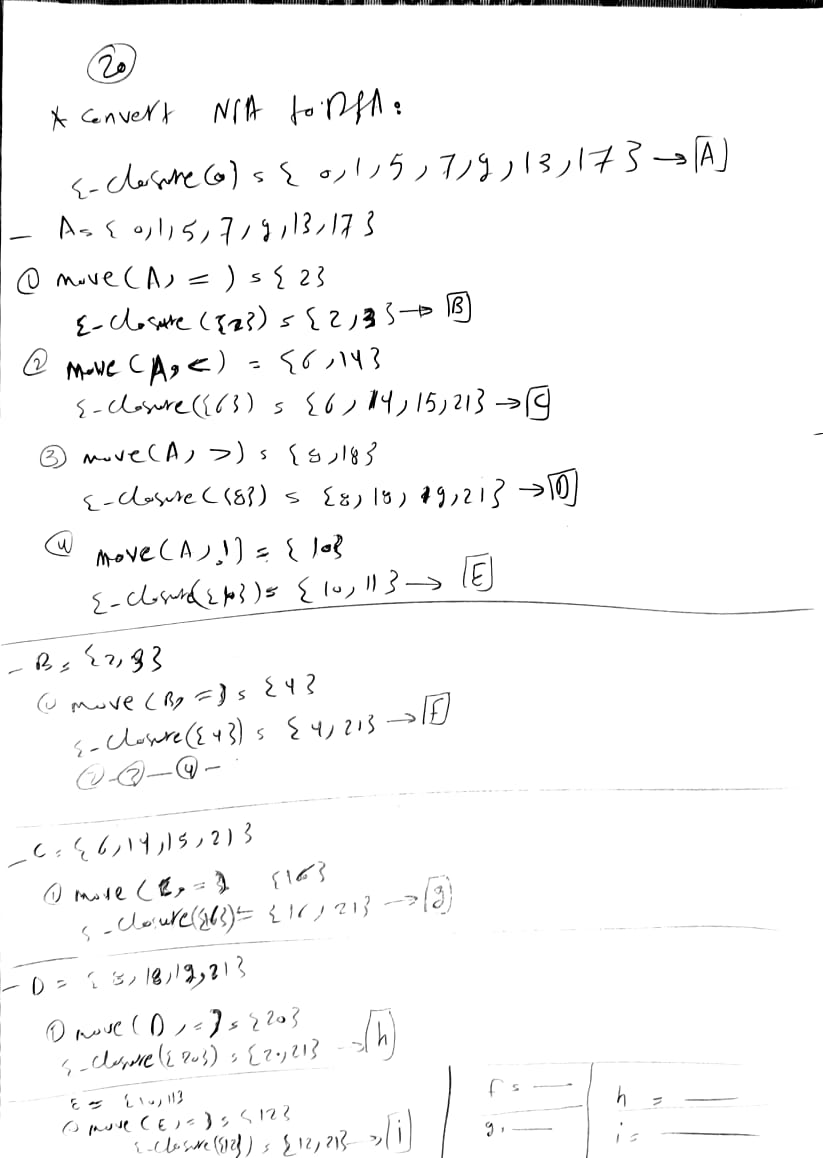 20
* Convert NFA to DFA:
ε-closure(0) = { 0,1,5,7,9,13,17 } → A
- A = { 0,1,5,7,9,13,17 }
① move(A, =) = { 2 }
ε-closure({2}) = { 2,3 } → B
② move(A, <) = {6,14}
ε-closure({6}) = {6,14,15,21} → C
③ move(A, >) = {8,18}
ε-closure({8}) = {8,18,19,21} → D
④ move(A, !) = { 10 }
ε-closure({10}) = { 10,11 } → E
- B = {2,3}
① move(B, =) = {4}
ε-closure({4}) = {4,21} → F
② - ③ - ④ -
- C = {6,14,15,21}
① move(C, =) {16}
ε-closure({16}) = {16,21} → g
- D = {8,18,19,21}
① move(D, =) = {20}
ε-closure({20}) = {20,21} → h
E = {10,11}
① move(E, =) = {12}
ε-closure({12}) = {12,21} → i
f = —
g = —
h = —
i = —